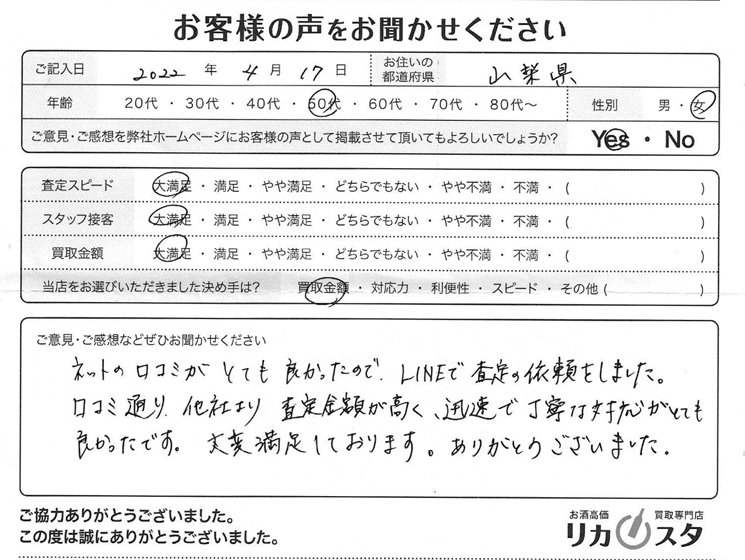 お客様の声をお聞かせください
ご記入日 2022 年 4 月 17 日 お住いの都道府県 山梨県
年齢 20代 ・ 30代 ・ 40代 ・ 50代 ・ 60代 ・ 70代 ・ 80代〜 性別 男 ・ 女
ご意見・ご感想を弊社ホームページにお客様の声として掲載させて頂いてもよろしいでしょうか? Yes ・ No
査定スピード 大満足 ・ 満足 ・ やや満足 ・ どちらでもない ・ やや不満 ・ 不満 ・ ( )
スタッフ接客 大満足 ・ 満足 ・ やや満足 ・ どちらでもない ・ やや不満 ・ 不満 ・ ( )
買取金額 大満足 ・ 満足 ・ やや満足 ・ どちらでもない ・ やや不満 ・ 不満 ・ ( )
当店をお選びいただきました決め手は? 買取金額 ・ 対応力 ・ 利便性 ・ スピード ・ その他 ( )
ご意見・ご感想などぜひお聞かせください
ネットの口コミがとても良かったので、LINEで査定の依頼をしました。
口コミ通り、他社より査定金額が高く、迅速で丁寧な対応がとても
良かったです。大変満足しております。ありがとうございました。
ご協力ありがとうございました。
この度は誠にありがとうございました。
お酒高価 買取専門店
リカスタ